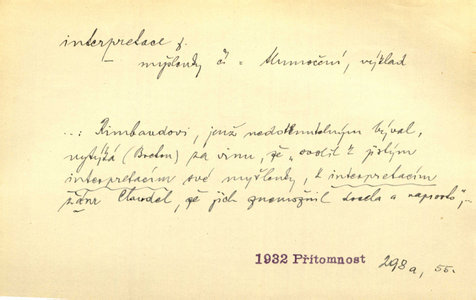 interpretace f.
myšlenky č. = tlumočení, výklad
...: Rimbaudovi, jenž nedotknutelným býval,
vytýká (Breton) za vinu, že „svolil k jistým
interpretacím své myšlenky, k interpretacím
žánr Claudel, že jich neznemožnil zcela a naprosto",-
1932 Přítomnost 298a, 55.